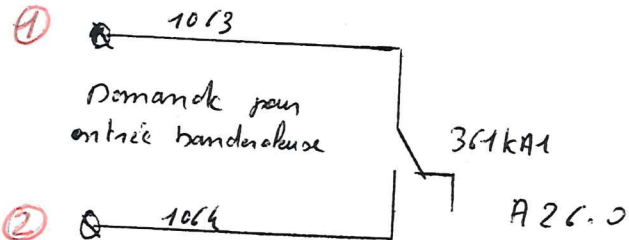 1
1063
Demande pour
entrée banderoleuse
361KA1
2
1064
A26.0